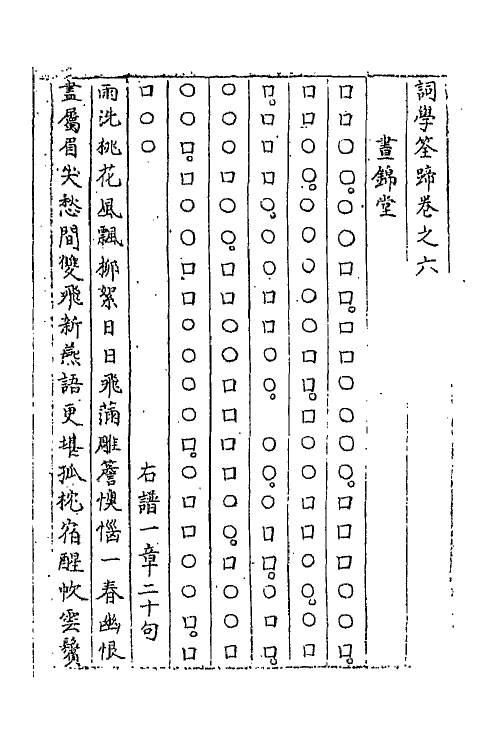 詞學筌蹄卷之六
晝錦堂
右譜一章二十句
雨洗桃花風飄柳絮日日飛滿雕簷懊惱一春幽恨
盡屬眉尖愁間雙飛新燕語更堪孤枕宿醒忺雲鬢